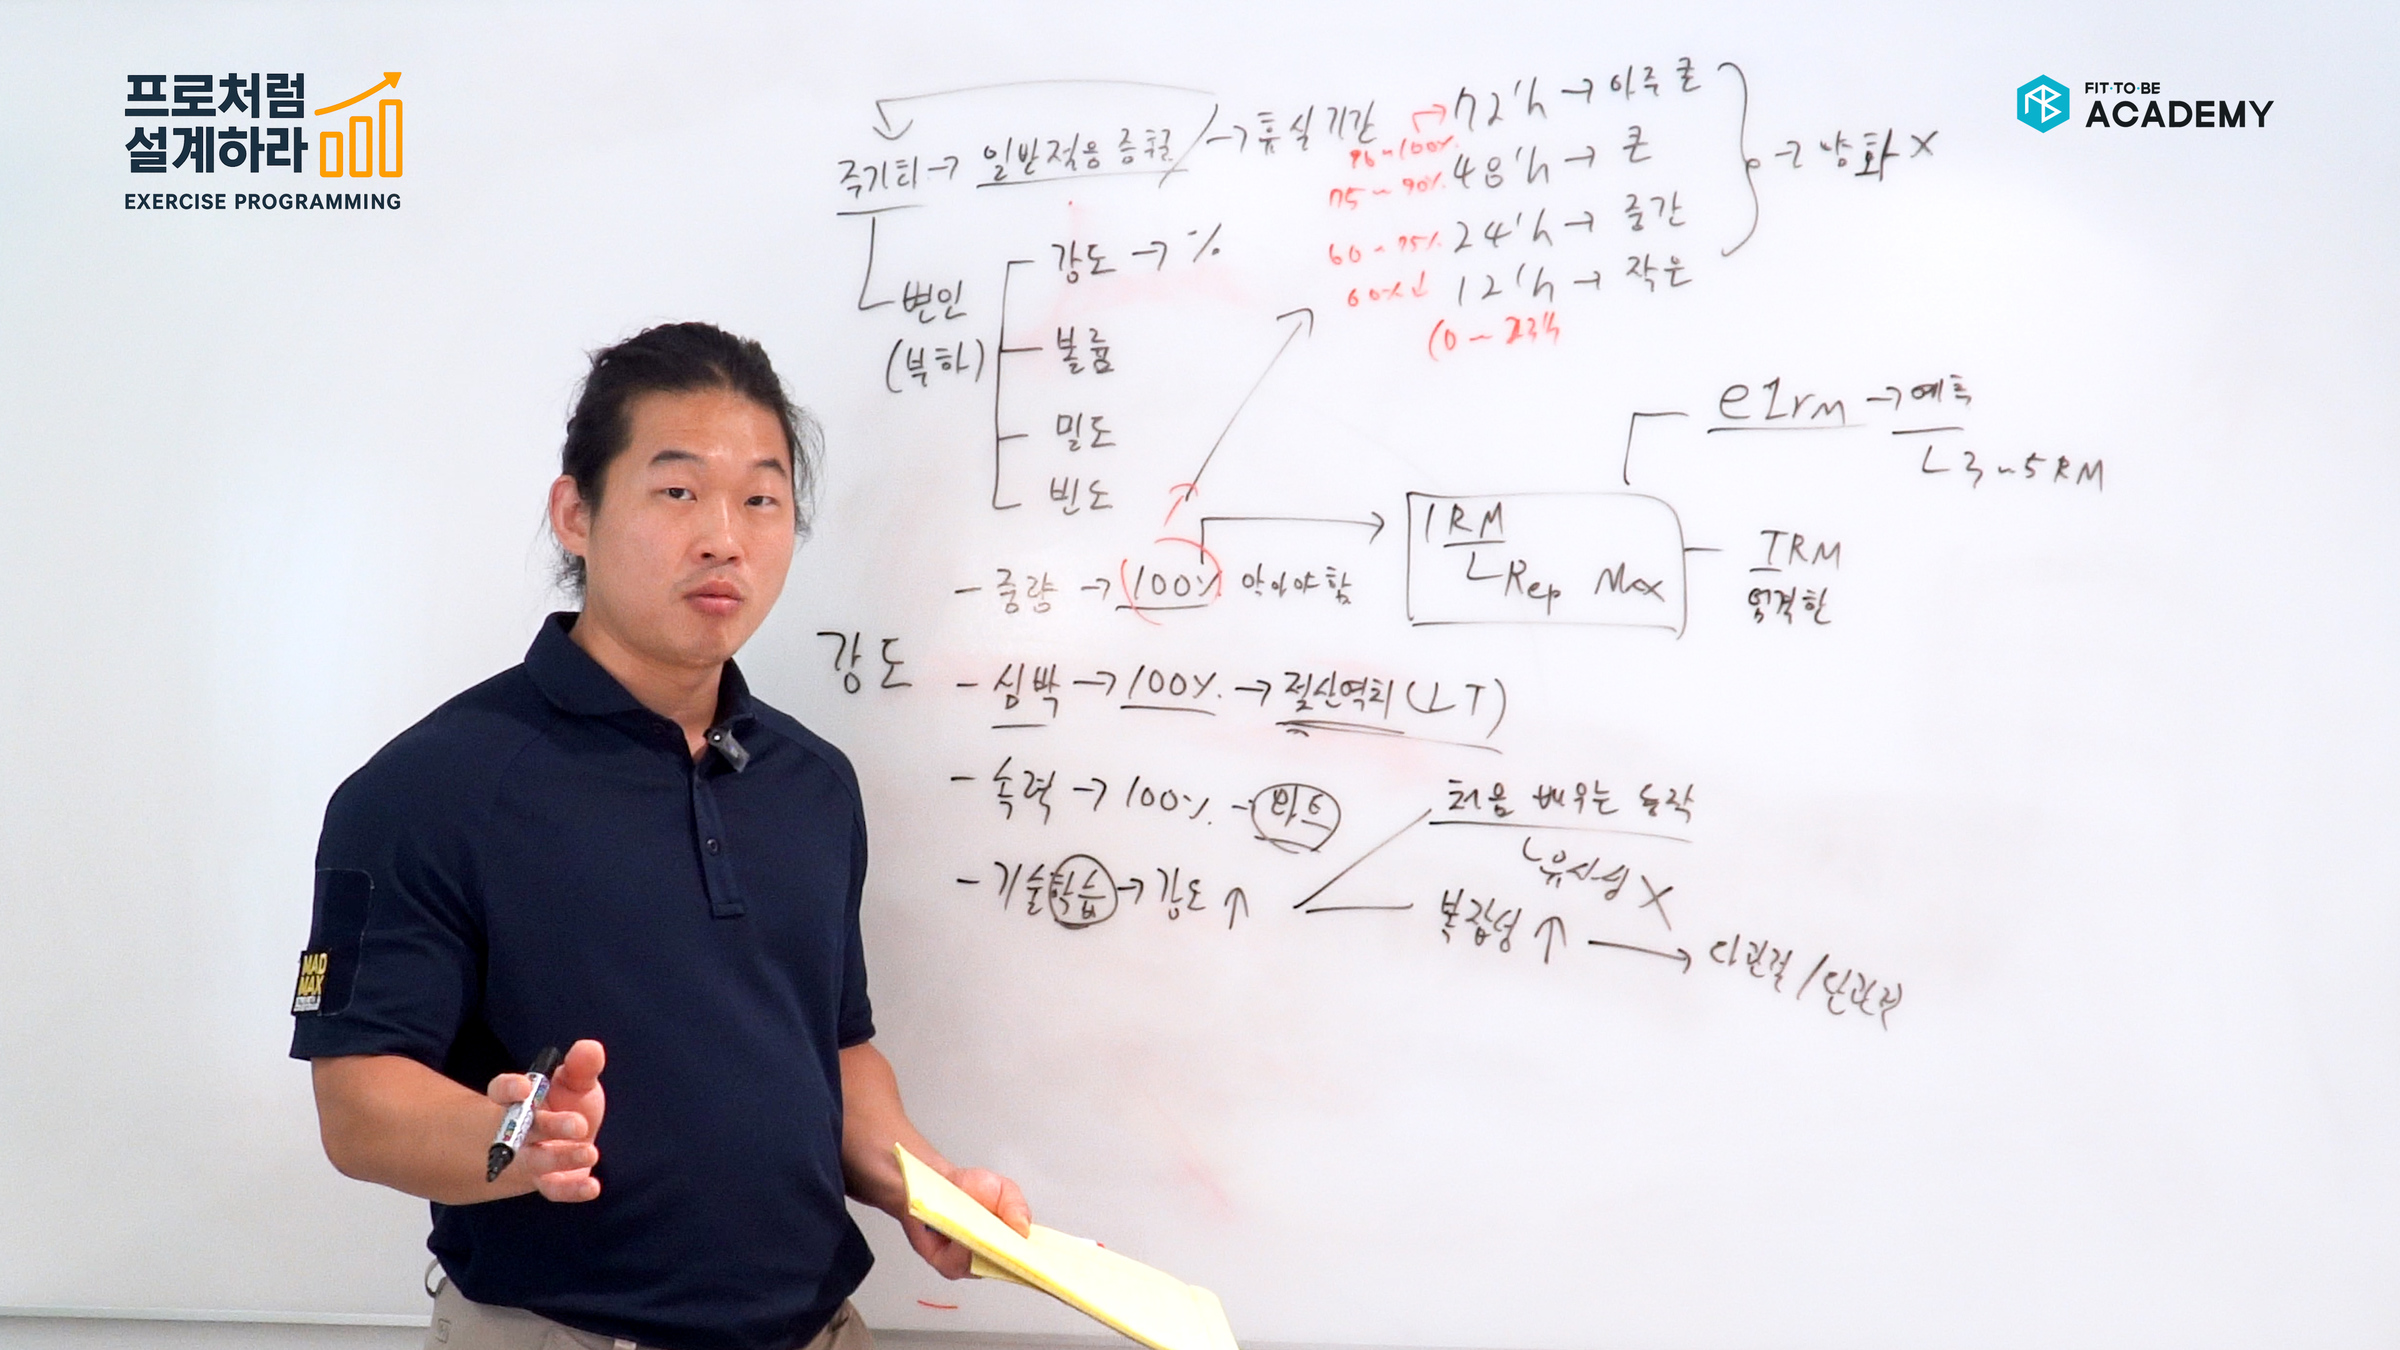 프로처럼
설계하라
EXERCISE PROGRAMMING
FIT·TO·BE
ACADEMY
주기화 → 일반적응증후군 → 휴식기간
90~100% 72'h → 아주 큰
75~90% 48'h → 큰
60~75% 24'h → 중간
60%↓ 12'h → 작은
→ 냥화 X
변인
(부하)
강도 → %
볼륨
밀도
빈도
e1rM → 예측
3~5RM
강도
- 중량 → 100% 알아야함
1RM
Rep Max
TRM
엄격한
- 심박 → 100% → 젖산역치 (LT)
- 속력 → 100%
- 기술학습 → 강도 ↑
처음 배우는 동작
유사성 X
복잡성 ↑ → 다관절 / 단관절
MAD
MAX